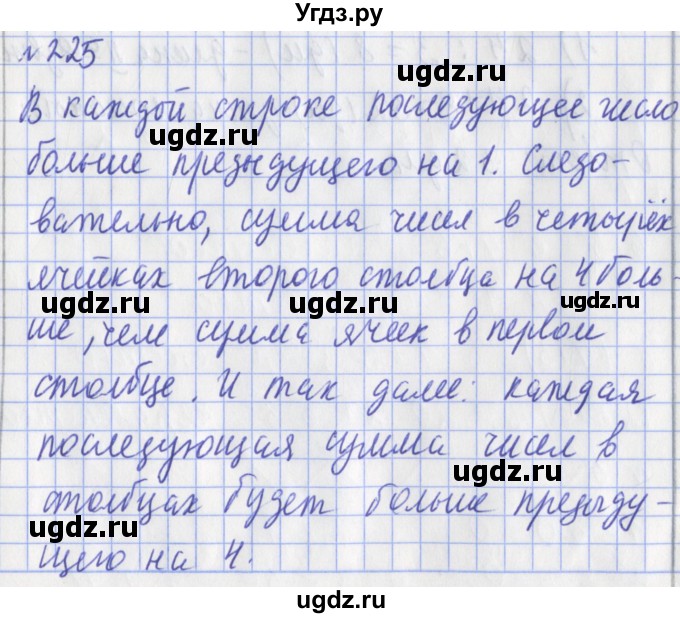 Угдз.ру
№225
ugdz.ru
В каждой строке последующее число
ugdz.ru
больше предыдущего на 1. Следо-
вательно, сумма чисел в четырёх
ячейках второго столбца на 4 боль-
ugdz.ru ugdz.ru ugdz.ru
ше, чем сумма ячеек в первом
столбце. И так далее: каждая
ugdz.ru
последующая сумма чисел в
ugdz.ru
столбцах будет больше предыду-
ugdz.ru
щего на 4.
ugdz.ru